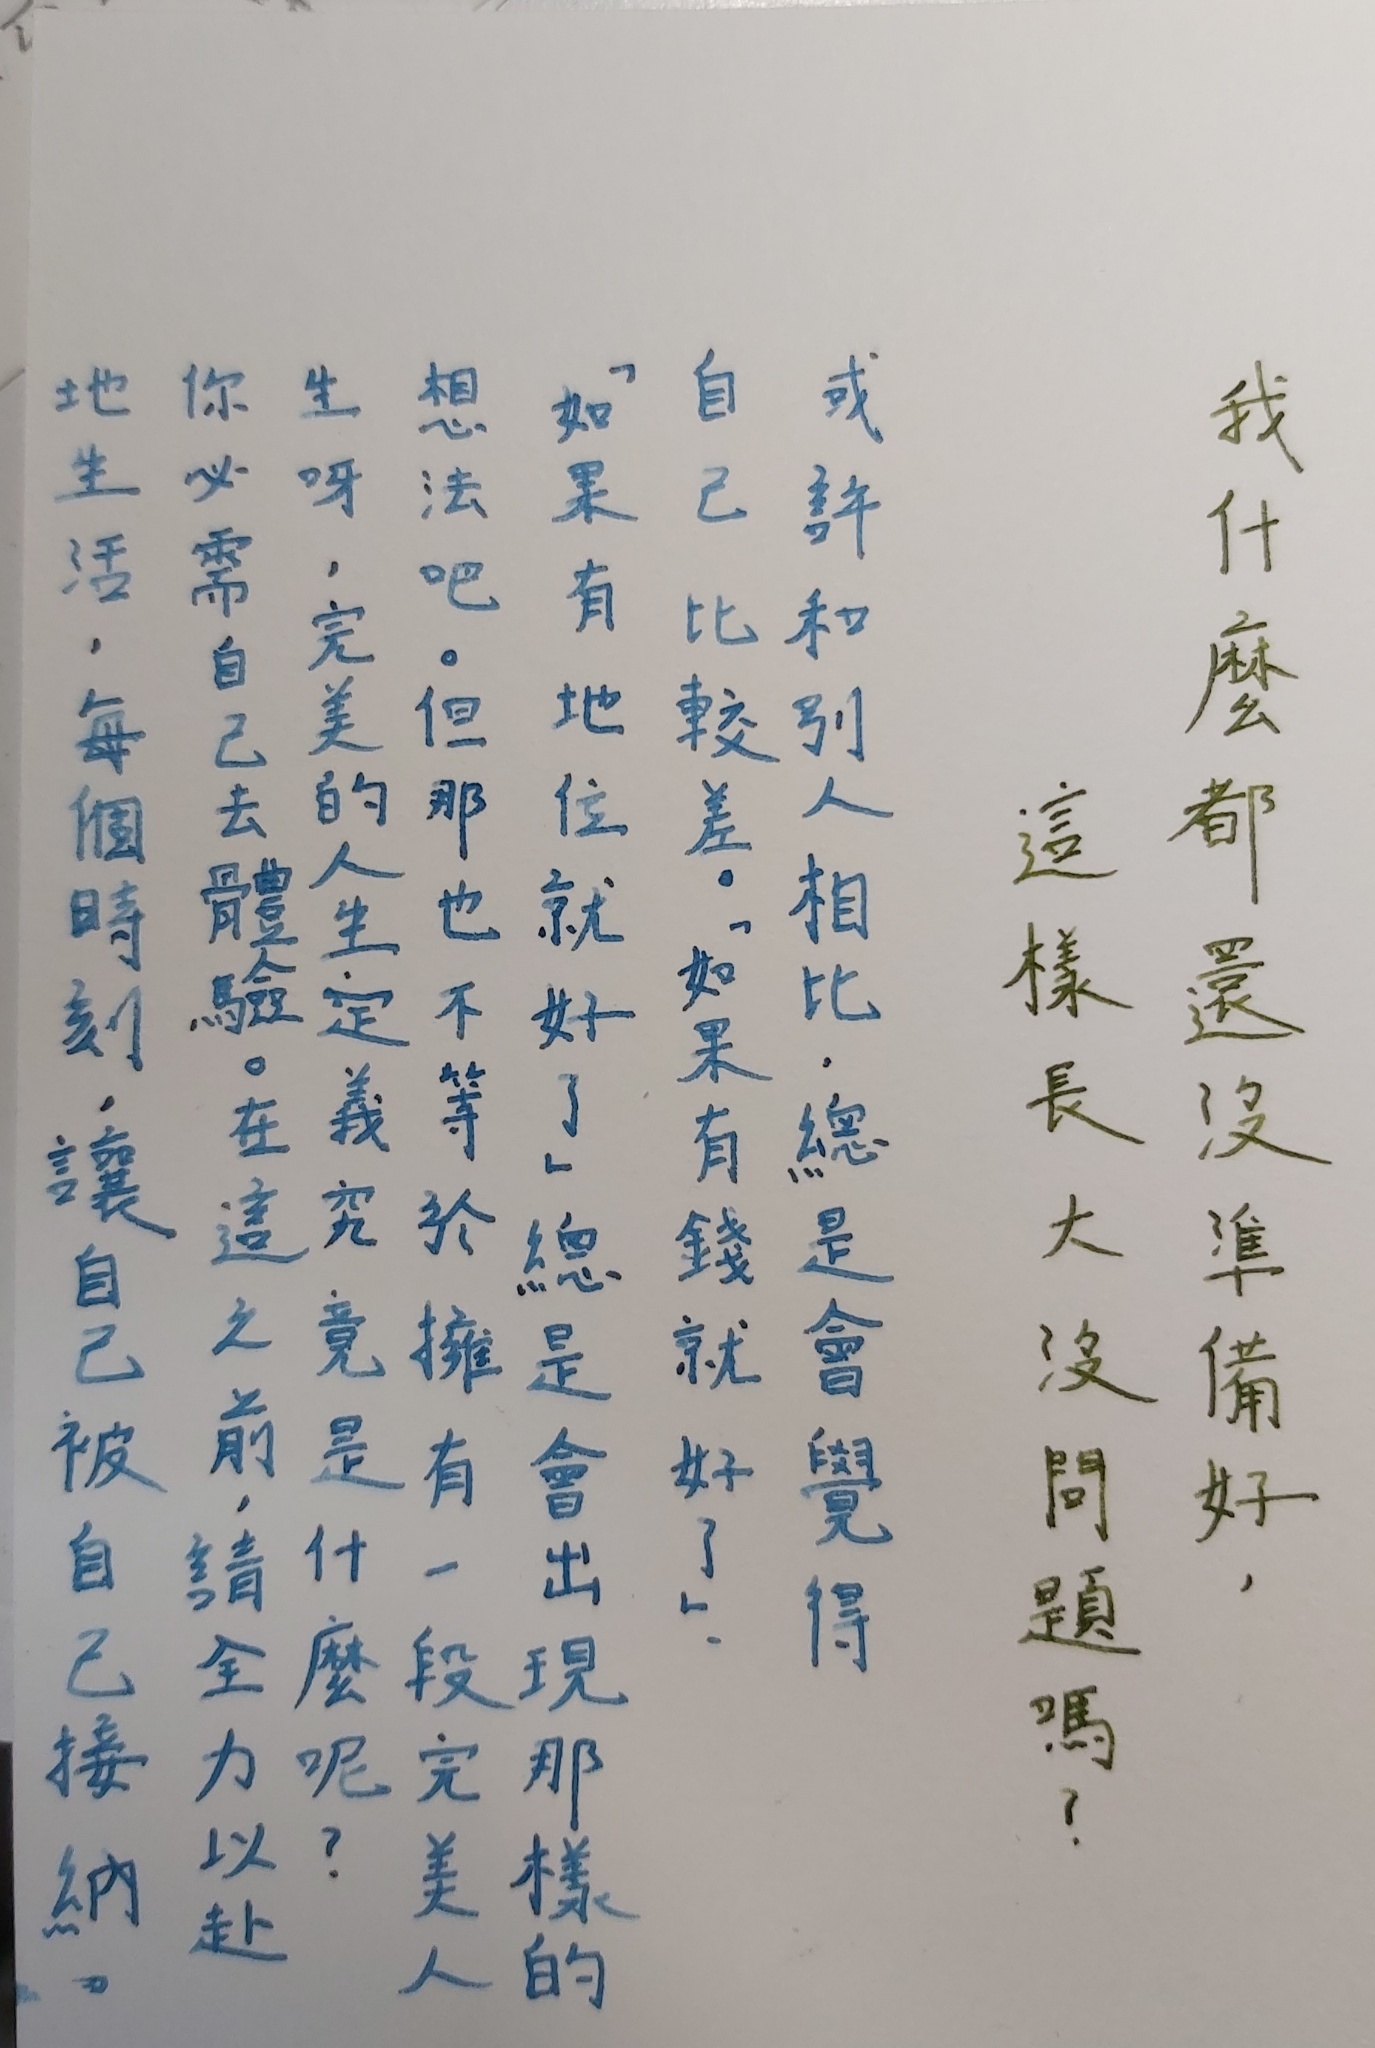 我什麼都還沒準備好，
這樣長大沒問題嗎？
或許和別人相比，總是會覺得
自己比較差。「如果有錢就好了」、
「如果有地位就好了」總是會出現那樣的
想法吧。但那也不等於擁有一段完美人
生呀，完美的人生定義究竟是什麼呢？
你必需自己去體驗。在這之前，請全力以赴
地生活，每個時刻，讓自己被自己接納。